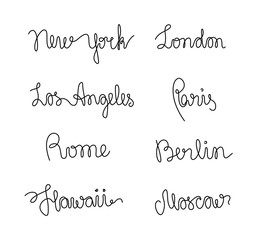 New York London
Los Angeles Paris
Rome Berlin
Hawaii Moscow